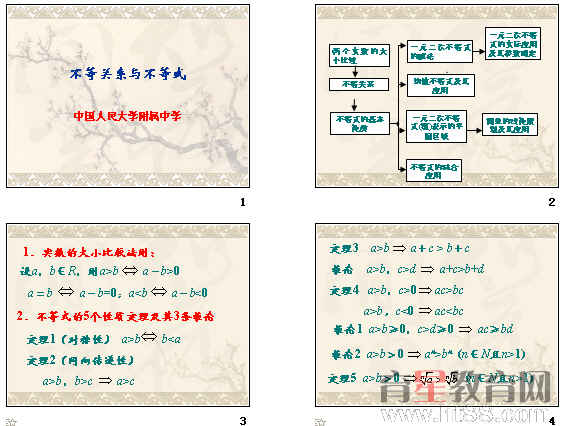 不等关系与不等式
中国人民大学附属中学
1
两个实数的大
小比较
不等关系
不等式的基本
性质
一元二次不等式
的解法
均值不等式及其
应用
一元二次不等
式(组)表示的平
面区域
不等式的综合
应用
一元二次不等
式的实际应用
2
1．实数的大小比较法则：
设a，b∈R，则a>b ⇔ a－b>0
a＝b ⇔ a－b=0；a<b ⇔ a－b<0
2．不等式的5个性质定理及其3条推论
定理1（对称性） a>b ⇔ b<a
定理2（同向传递性）
a>b，b>c ⇒ a>c
3
定理3 a>b ⇒ a＋c > b＋c
推论 a>b，c>d ⇒ a+c>b+d
定理4 a>b，c>0 ⇒ ac>bc
a>b，c<0 ⇒ ac<bc
推论1 a>b≥0，c>d≥0 ⇒ ac≥bd
推论2 a>b>0 ⇒ aⁿ>bⁿ (n∈N且n>1)
定理5 a>b>0 ⇒ ⁿ√a > ⁿ√b (n∈N且n>1)
育星教育网
4